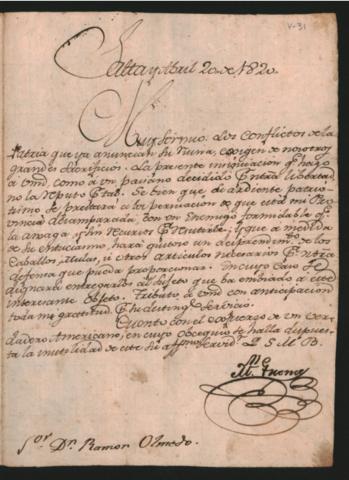 V-31
Salta y Abril 20 de 1820
Muy Sr mio: Los conflictos de la
Patria que ya anuncian su ruina, exigen de nosotros
grandes sacrificios. La presente insinuacion q.e hago
a Vmd, como á un paisano decidido
no la reputo Se bien que su ardiente patrio-
tismo se prestará a la persuacion de que esta mi Pro-
vincia desamparada, con un Enemigo formidable q.e
la amaga, y sin recursos y que a medida
de su entusiasmo, hará gustoso un desprendim.to de los
Caballos, Mulas, ú otros articulos necesarios
defensa que pueda proporcionar. En cuyo caso se
dignará entregarlos al sujeto que ha embiado a este
interesante objeto. Tributo a Vmd con anticipacion
toda mi gratitud
Cuento con el esfuerzo de un ver-
dadero Americano, en cuyo obsequio se halla dispues-
ta la inutilidad de este su aff.mo Q S M B.
M. Guemes
S.or D.n Ramon Olmedo.